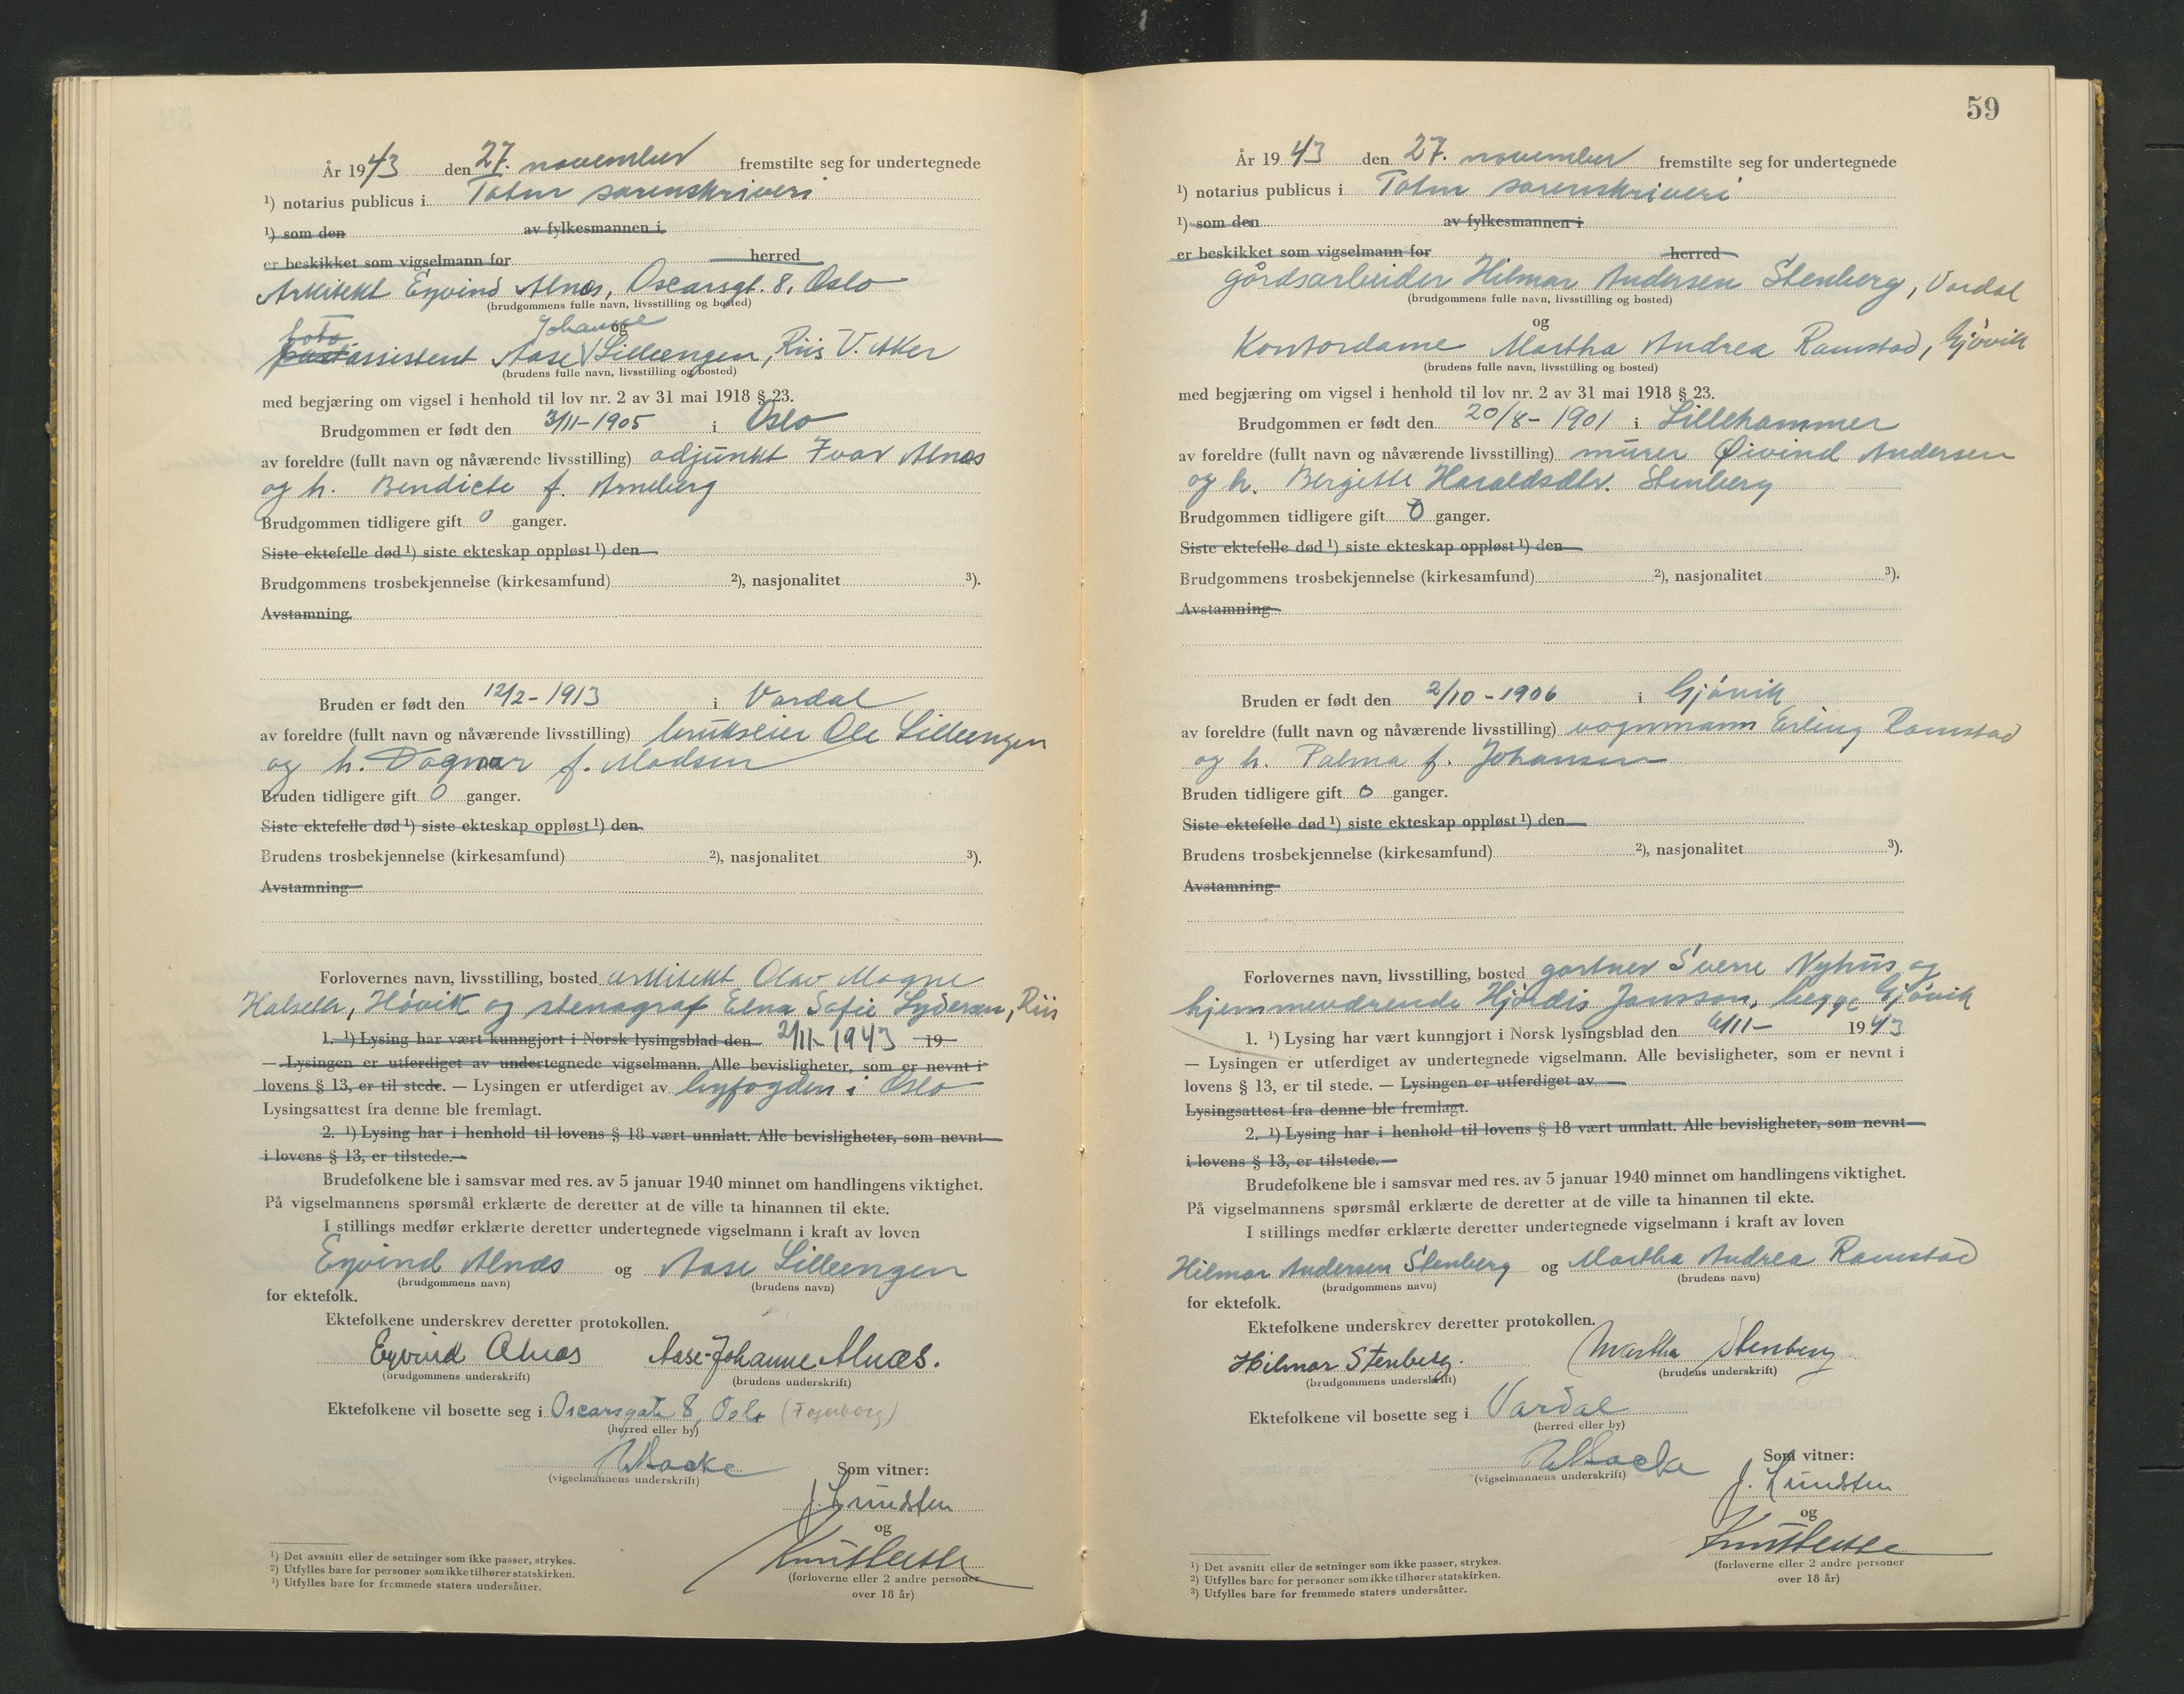 År 1943 den 27. november fremstilte seg for undertegnede
¹) notarius publicus i Toten sorenskriveri
¹) som den av fylkesmannen i
er beskikket som vigselmann for herred
Arkitekt Eyvind Alnæs, Oscarsgt. 8, Oslo
(brudgommens fulle navn, livsstilling og bosted)
foto Johanne og
postassistent Aase √ Lilleengen, Riis V. Aker
(brudens fulle navn, livsstilling og bosted)
med begjæring om vigsel i henhold til lov nr. 2 av 31 mai 1918 § 23.
Brudgommen er født den 3/11-1905 i Oslo
av foreldre (fullt navn og nåværende livsstilling) adjunkt Ivar Alnæs
og h. Bendicte f. Arneberg
Brudgommen tidligere gift 0 ganger.
Siste ektefelle død ¹) siste ekteskap oppløst ¹) den
Brudgommens trosbekjennelse (kirkesamfund) ²), nasjonalitet ³).
Avstamning
Bruden er født den 12/2-1913 i Vardal
av foreldre (fullt navn og nåværende livsstilling) brukseier Ole Lilleengen
og h. Dagmar f. Madsen
Bruden tidligere gift 0 ganger.
Siste ektefelle død ¹) siste ekteskap oppløst ¹) den
Brudens trosbekjennelse (kirkesamfund) ²), nasjonalitet ³).
Avstamning
Forlovernes navn, livsstilling, bosted arkitekt Olav Magne
Halseth, Høvik og stenograf Elna Sofie Lydersen, Riis
1. ¹) Lysing har vært kunngjort i Norsk lysingsblad den 2/11-1943 19
— Lysingen er utferdiget av undertegnede vigselmann. Alle bevisligheter, som er nevnt i
lovens § 13, er til stede. — Lysingen er utferdiget av byfogden i Oslo
Lysingsattest fra denne ble fremlagt.
2. ¹) Lysing har i henhold til lovens § 18 vært unnlatt. Alle bevisligheter, som nevnt
i lovens § 13, er tilstede.
Brudefolkene ble i samsvar med res. av 5 januar 1940 minnet om handlingens viktighet.
På vigselmannens spørsmål erklærte de deretter at de ville ta hinannen til ekte.
I stillings medfør erklærte deretter undertegnede vigselmann i kraft av loven
Eyvind Alnæs og Aase Lilleengen
(brudgommens navn) (brudens navn)
for ektefolk.
Ektefolkene underskrev deretter protokollen.
Eyvind Alnæs Aase-Johanne Alnæs.
(brudgommens underskrift) (brudens underskrift)
Ektefolkene vil bosette seg i Oscarsgate 8, Oslo (Fagerborg)
(herred eller by)
(vigselmannens underskrift) Som vitner:
J. Lundsten
og
(forloverne eller 2 andre personer
over 18 år)
¹) Det avsnitt eller de setninger som ikke passer, strykes.
²) Utfylles bare for personer som ikke tilhører statskirken.
³) Utfylles bare for fremmede staters undersåtter.
59
År 1943 den 27. november fremstilte seg for undertegnede
¹) notarius publicus i Toten sorenskriveri
¹) som den av fylkesmannen i
er beskikket som vigselmann for herred
gårdsarbeider Hilmar Andersen Stenberg, Vardal
(brudgommens fulle navn, livsstilling og bosted)
og
Kontordame Martha Andrea Ramstad, Gjøvik
(brudens fulle navn, livsstilling og bosted)
med begjæring om vigsel i henhold til lov nr. 2 av 31 mai 1918 § 23.
Brudgommen er født den 20/8-1901 i Lillehammer
av foreldre (fullt navn og nåværende livsstilling) murer Øivind Andersen
og h. Bergitte Haraldsdtr. Stenberg
Brudgommen tidligere gift 0 ganger.
Siste ektefelle død ¹) siste ekteskap oppløst ¹) den
Brudgommens trosbekjennelse (kirkesamfund) ²), nasjonalitet ³).
Avstamning
Bruden er født den 2/10-1906 i Gjøvik
av foreldre (fullt navn og nåværende livsstilling) vognmann Erling Ramstad
og h. Palma f. Johansen
Bruden tidligere gift 0 ganger.
Siste ektefelle død ¹) siste ekteskap oppløst ¹) den
Brudens trosbekjennelse (kirkesamfund) ²), nasjonalitet ³).
Avstamning
Forlovernes navn, livsstilling, bosted gartner Sverre Nyhus og
hjemmeværende Hjørdis Jansson, begge Gjøvik
1. ¹) Lysing har vært kunngjort i Norsk lysingsblad den 6/11- 1943
— Lysingen er utferdiget av undertegnede vigselmann. Alle bevisligheter, som er nevnt i
lovens § 13, er til stede. — Lysingen er utferdiget av
Lysingsattest fra denne ble fremlagt.
2. ¹) Lysing har i henhold til lovens § 18 vært unnlatt. Alle bevisligheter, som nevnt
i lovens § 13, er tilstede.
Brudefolkene ble i samsvar med res. av 5 januar 1940 minnet om handlingens viktighet.
På vigselmannens spørsmål erklærte de deretter at de ville ta hinannen til ekte.
I stillings medfør erklærte deretter undertegnede vigselmann i kraft av loven
Hilmar Andersen Stenberg og Martha Andrea Ramstad
(brudgommens navn) (brudens navn)
for ektefolk.
Ektefolkene underskrev deretter protokollen.
Hilmar Stenberg. Martha Stenberg.
(brudgommens underskrift) (brudens underskrift)
Ektefolkene vil bosette seg i Vardal
(herred eller by)
(vigselmannens underskrift) Som vitner:
J. Lundsten
og
(forloverne eller 2 andre personer
over 18 år)
¹) Det avsnitt eller de setninger som ikke passer, strykes.
²) Utfylles bare for personer som ikke tilhører statskirken.
³) Utfylles bare for fremmede staters undersåtter.